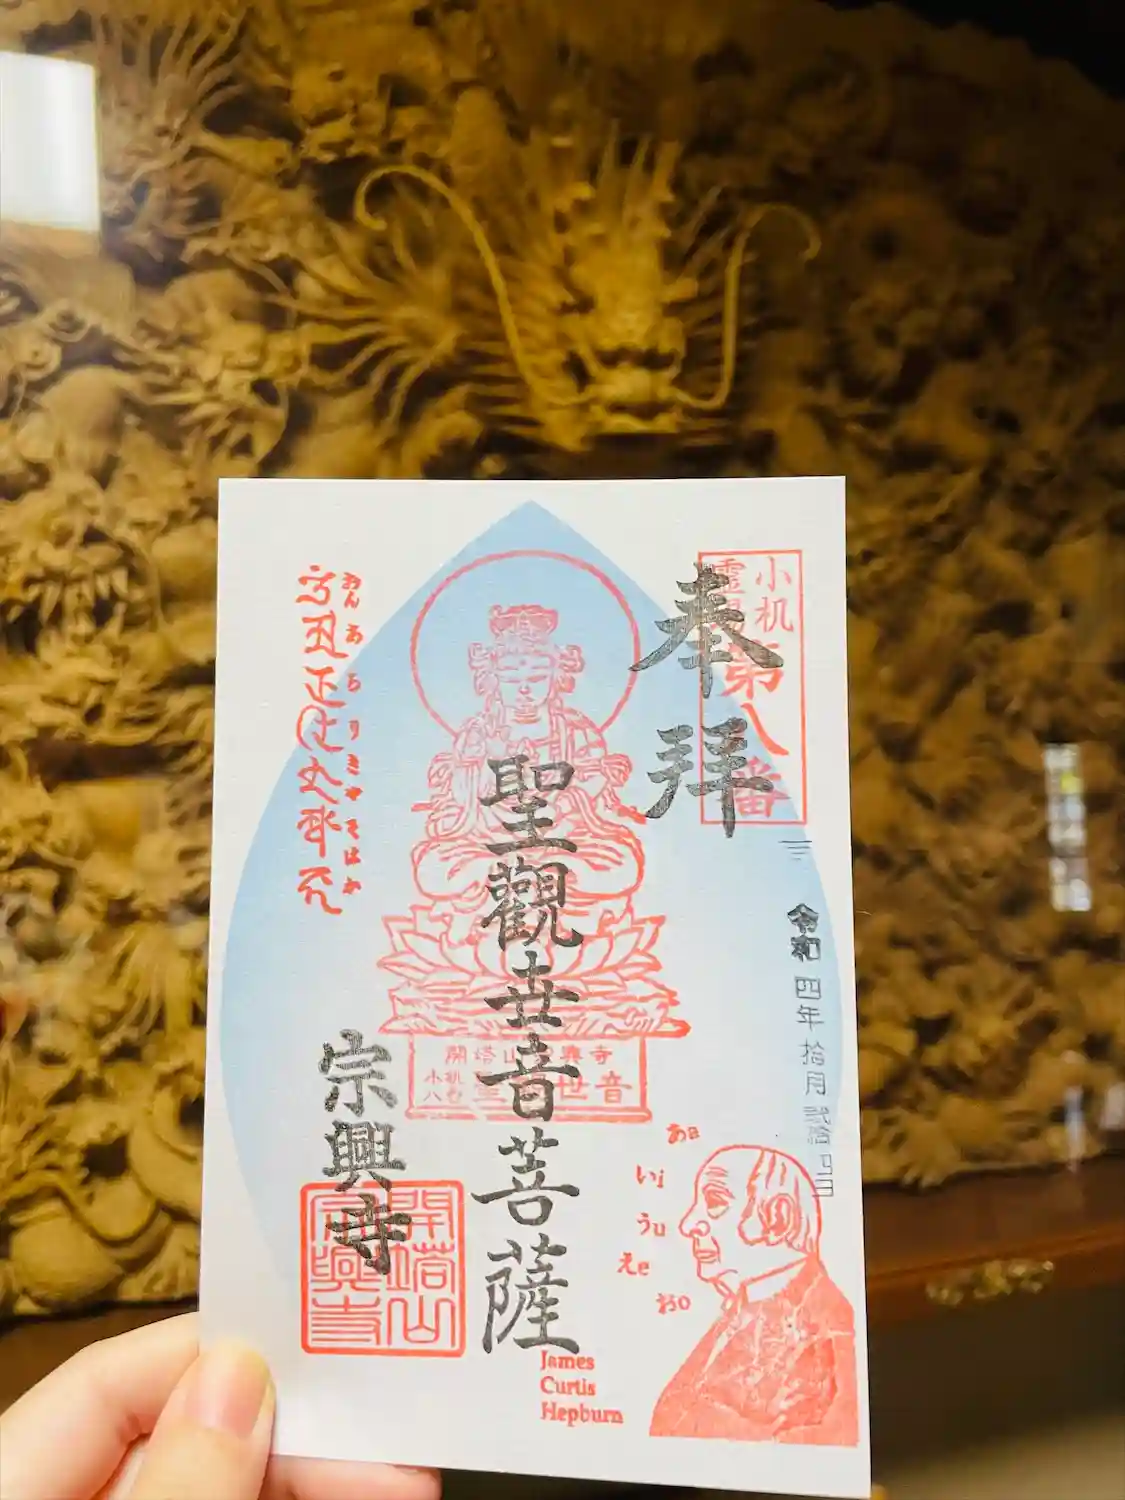 奉拝
小机
霊場
第八番
令和四年拾月弐拾
聖觀世音菩薩
おんあろりきゃそはか
開塔山宗興寺
小机
八番
聖観世音
宗興寺
開塔山
宗興寺
あa
いi
うu
えe
おo
James
Curtis
Hepburn